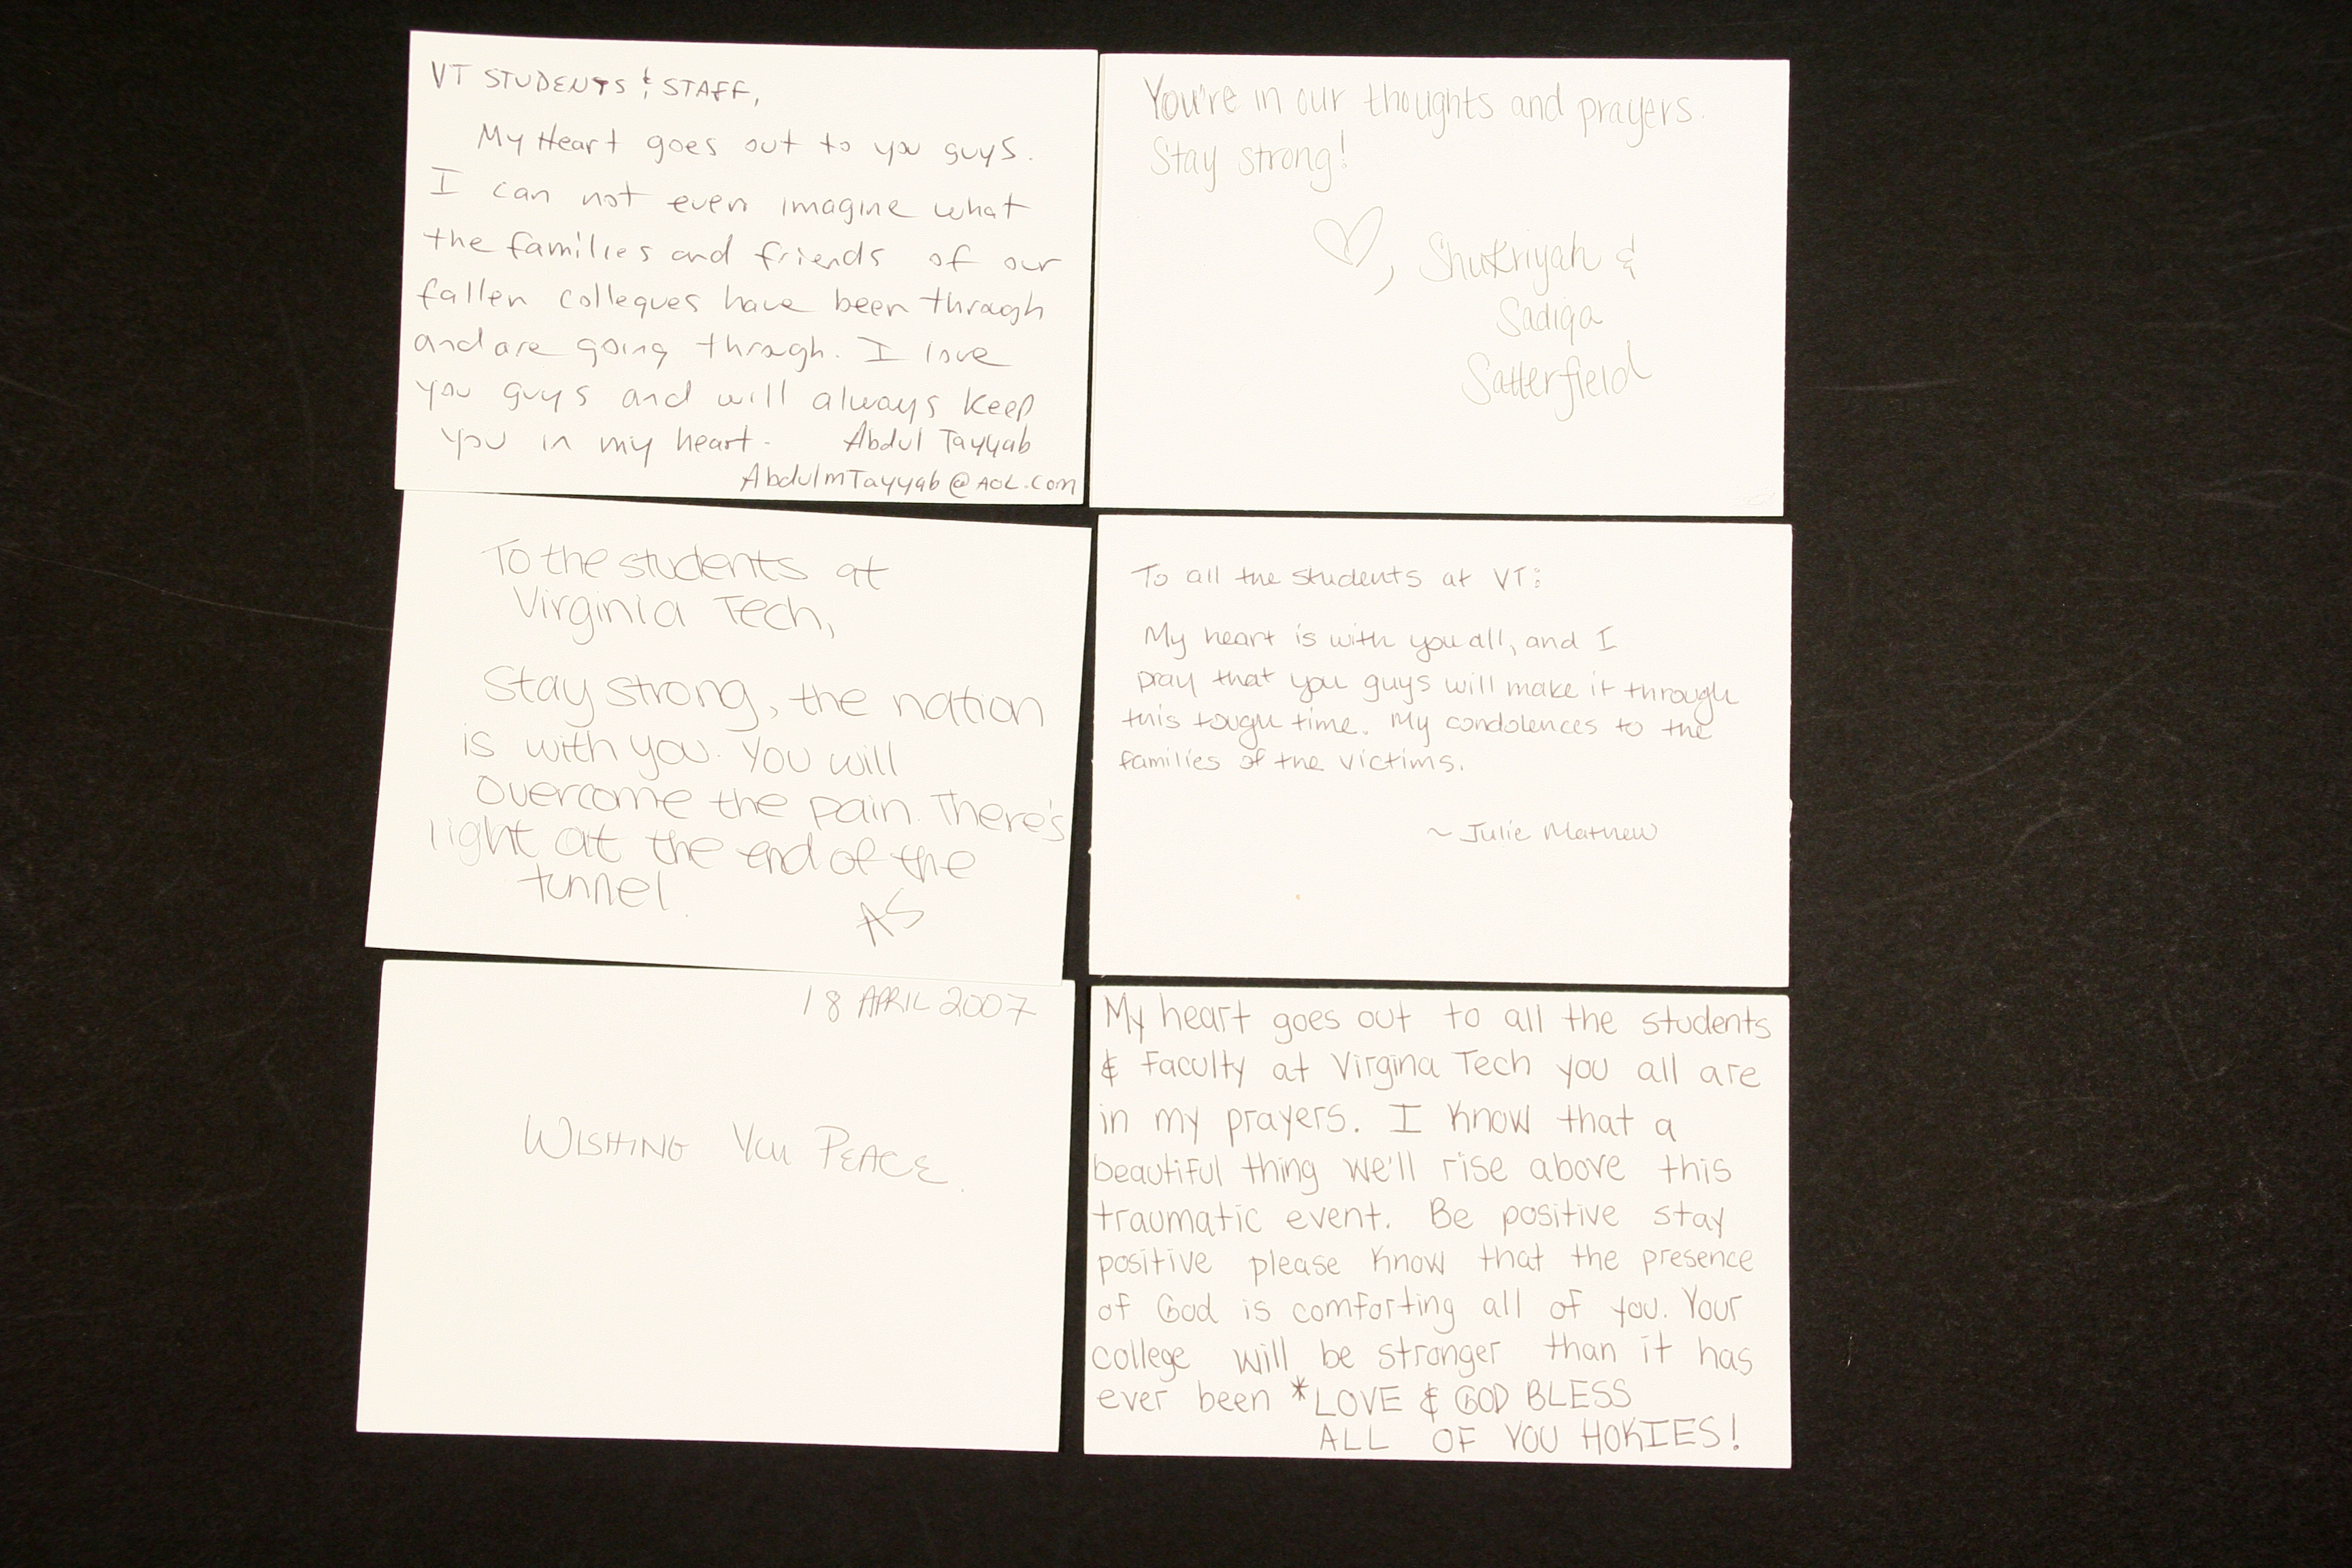 VT STUDENTS & STAFF,
My Heart goes out to you guys.
I can not even imagine what
the families and friends of our
fallen colleques have been through
and are going through. I love
you guys and will always keep
you in my heart. Abdul Tayyab
AbdulmTayyab@AOL.com
You're in our thoughts and prayers.
Stay strong!
♡, Shukriyah &
Sadiqa
Satterfield
To the students at
Virginia Tech,
Stay strong, the nation
is with you. You will
overcome the pain. There's
light at the end of the
tunnel.
AS
To all the students at VT:
My heart is with you all, and I
pray that you guys will make it through
this tough time. My condolences to the
families of the victims.
~ Julie Mathew
18 APRIL 2007
WISHING YOU PEACE.
My heart goes out to all the students
& faculty at Virgina Tech you all are
in my prayers. I know that a
beautiful thing we'll rise above this
traumatic event. Be positive stay
positive please know that the presence
of God is comforting all of you. Your
college will be stronger than it has
ever been *LOVE & GOD BLESS
ALL OF YOU HOKIES!